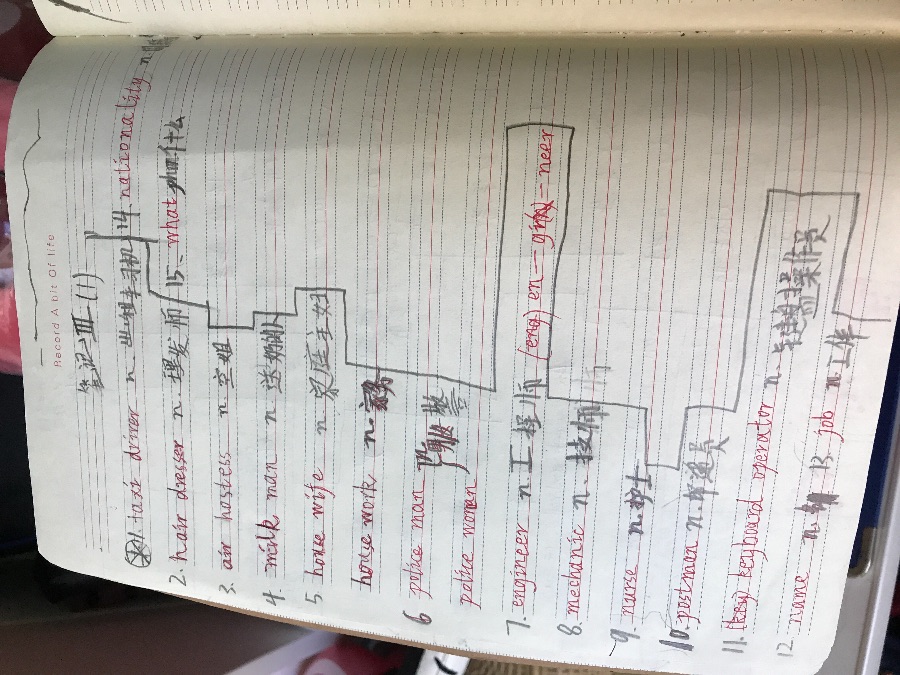 Record A bit Of life
笔记之III (1)
1. taxi driver n 出租车司机 14 nationality n.
2. hair dresser n. 理发师 15、what 什么
3. air hostess n 空姐
4. milk man n 送奶
5 house wife n 家庭主妇
house work n. 家务
6 police man 警
police woman
7. engineer n 工程师 (eng) en — gi — neer
8. mechanic n. 技师
9 nurse n. 护士
10 postman n. 邮递员
11. (key) keyboard operator n. 键盘操作员
12 name n. 13. job n. 工作